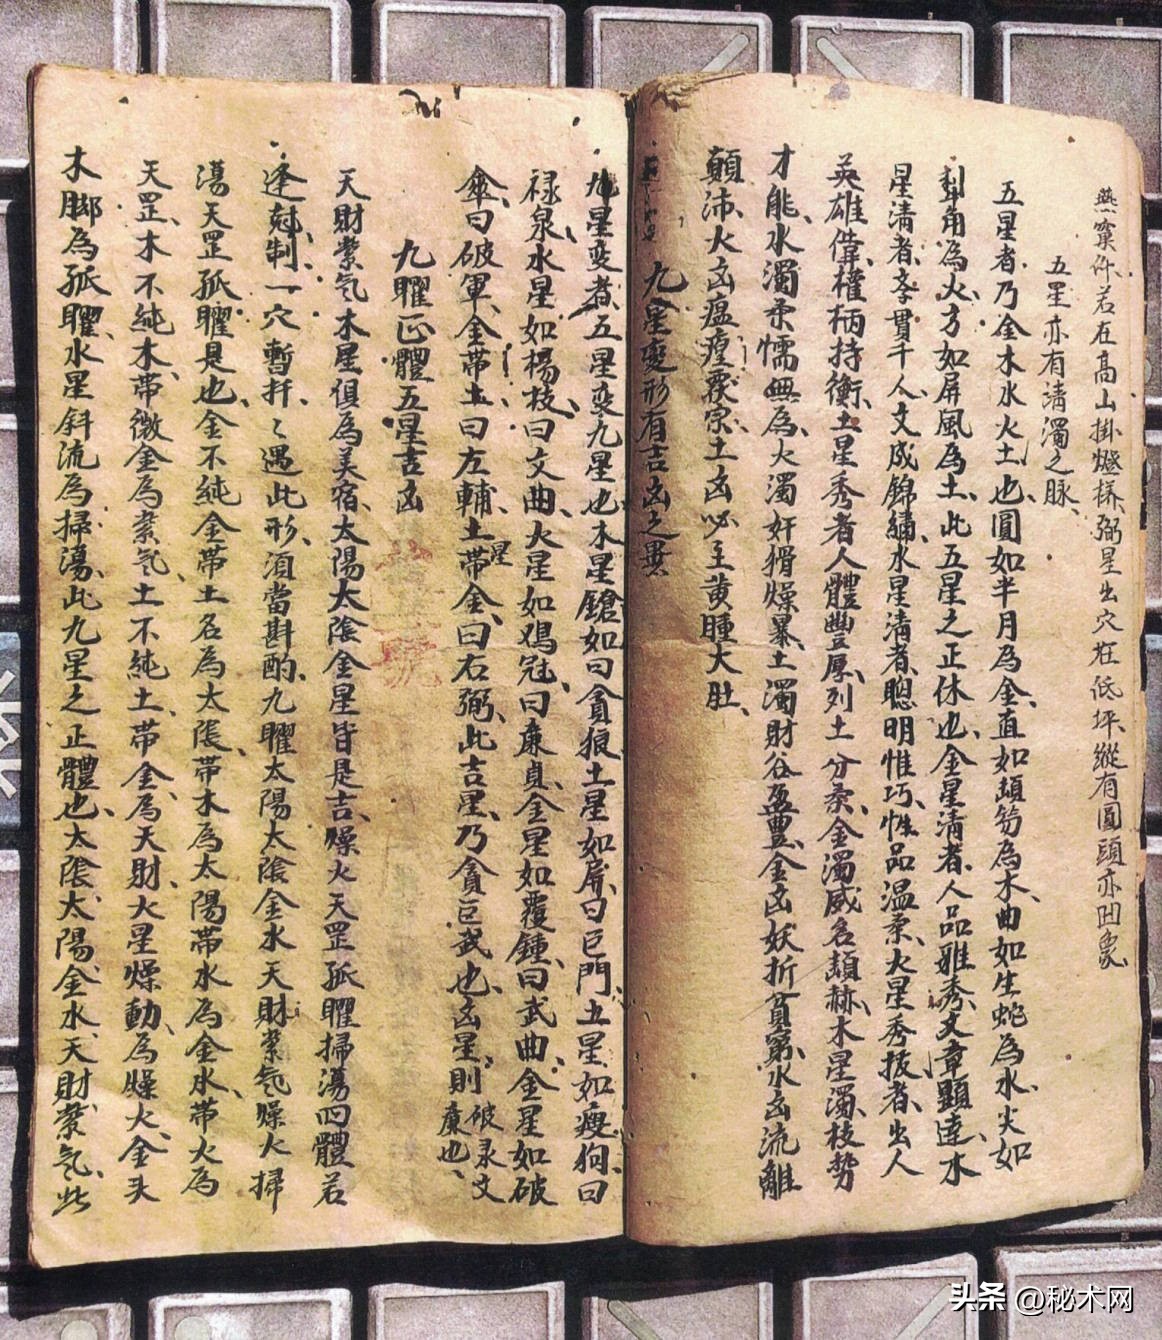 燕窠仰、若在高山掛燈樣、弼星出穴在低坪、縱有圓頭亦凹象、
五星亦有清濁之脉、
五星者乃金木水火土也、圓如半月為金、直如頓笏為木、曲如生蛇為水、尖如
犁角為火、方如屏風為土、此五星之正体也、金星清者、人品雅秀、文章顯達、木
星清者、孝貫千人、文成錦繡、水星清者、聰明惟巧、性品温柔、火星秀拔者、出人
英雄偉、權柄持衡、土星秀者、人體豐厚、列土分茅、金濁威名頡赫、木星濁、枝势
才能、水濁柔懦無為、火濁奸猾燥暴、土濁財谷盈豊、金凶妖折貧窮、水凶流離
顛沛、火凶瘟㾮灭宗、土凶必主黄腫大肚、
九星变形有吉凶之異
九星变者、五星变九星也、木星鎗如曰貪狼、土星如屏曰巨門、土星如瘦狗曰
禄泉、水星如楊枝曰文曲、火星如鸡冠曰廉貞、金星如覆鍾曰武曲、金星如破
傘曰破軍、金带土曰左輔、土星带金曰右弼、此吉星乃貪巨武也、凶星則破录文廉也、
九曜正體五星吉凶
天財紫气木星俱為美宿、太陽太陰金星皆是吉、燥火天罡孤曜掃蕩四體若
逢尅制、一穴暫扦、〻遇此形須當斟酌、九曜太陽太陰金水天財紫气燥火掃
蕩天罡孤曜是也、金不純金带土名為太陰、带木為太陽、带水為金水、带火為
天罡、木不純木、带微金為紫气、土不純土、带金為天財、火星燥動、為燥火、金头
木脚為孤曜、水星斜流為掃蕩、此九星之正體也、太陰太陽金水天財紫气、些
头条 @秘术网